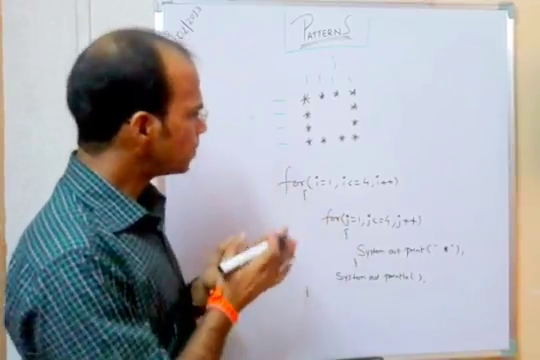 02/2013
PATTERNS
* * * *
* *
* *
* * * *
for(i=1, i<=4, i++)
{
for(j=1, j<=4, j++)
{
System out print(" *"),
}
System out println( ),